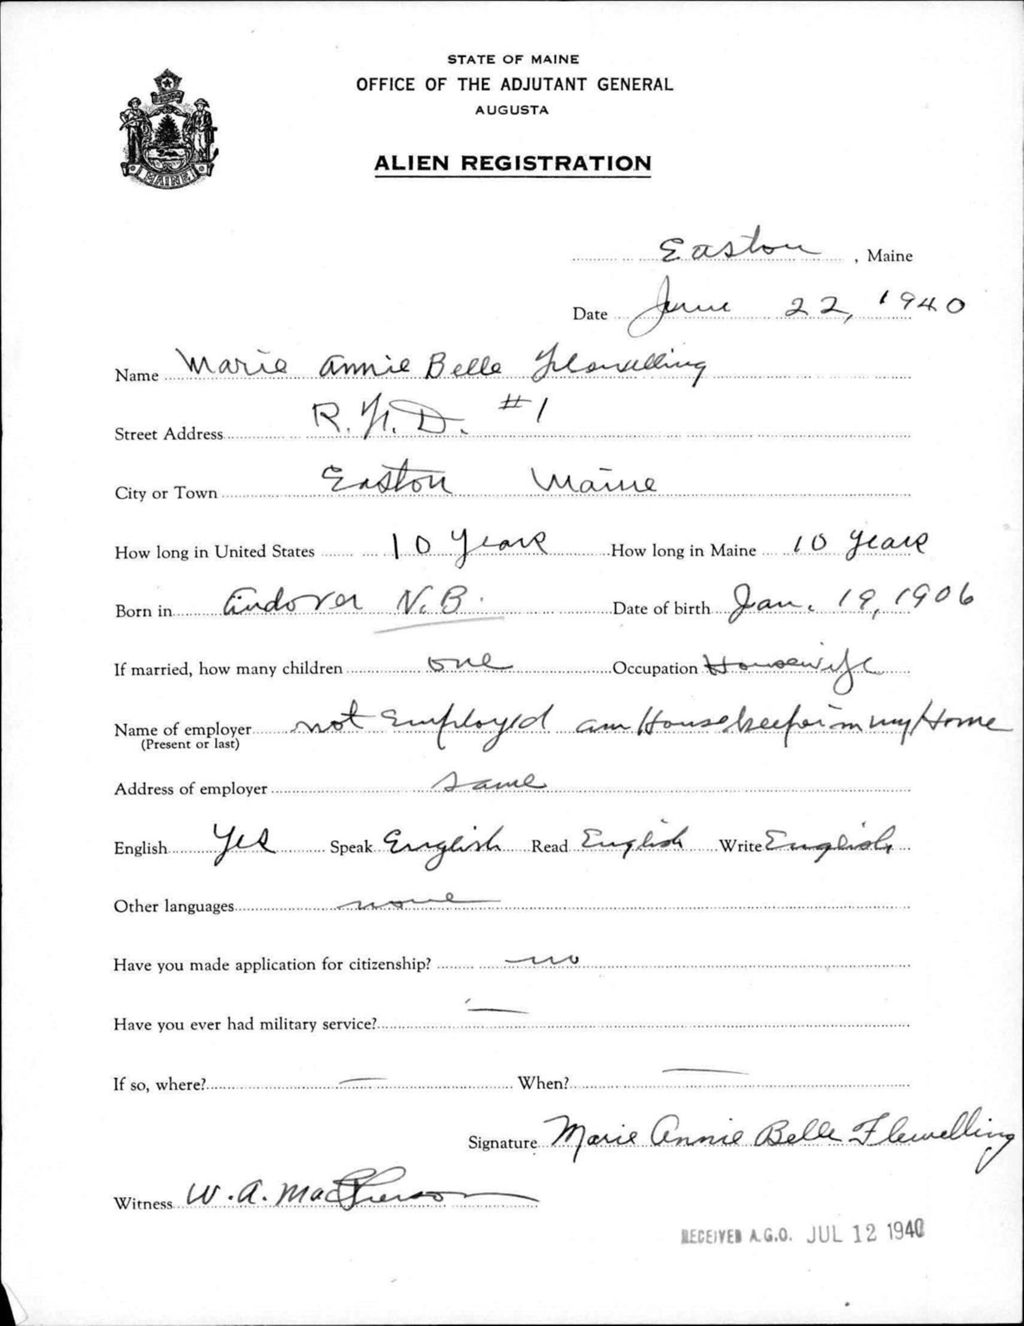 STATE OF MAINE
OFFICE OF THE ADJUTANT GENERAL
AUGUSTA
ALIEN REGISTRATION
MAINE
Easton, Maine
Date June 22, 1940
Name Marie Annie Belle Flewelling
Street Address R.F.D. #1
City or Town Easton Maine
How long in United States 10 years How long in Maine 10 years
Born in Andover N.B. Date of birth Jan. 19, 1906
If married, how many children one Occupation Housewife
Name of employer not Employed am Housekeeper in my Home
(Present or last)
Address of employer same
English Yes Speak English Read English Write English
Other languages none
Have you made application for citizenship? no
Have you ever had military service? —
If so, where? — When? —
Signature Marie Annie Belle Flewelling
Witness W. A. MacPherson
RECEIVED A.G.O. JUL 12 1940